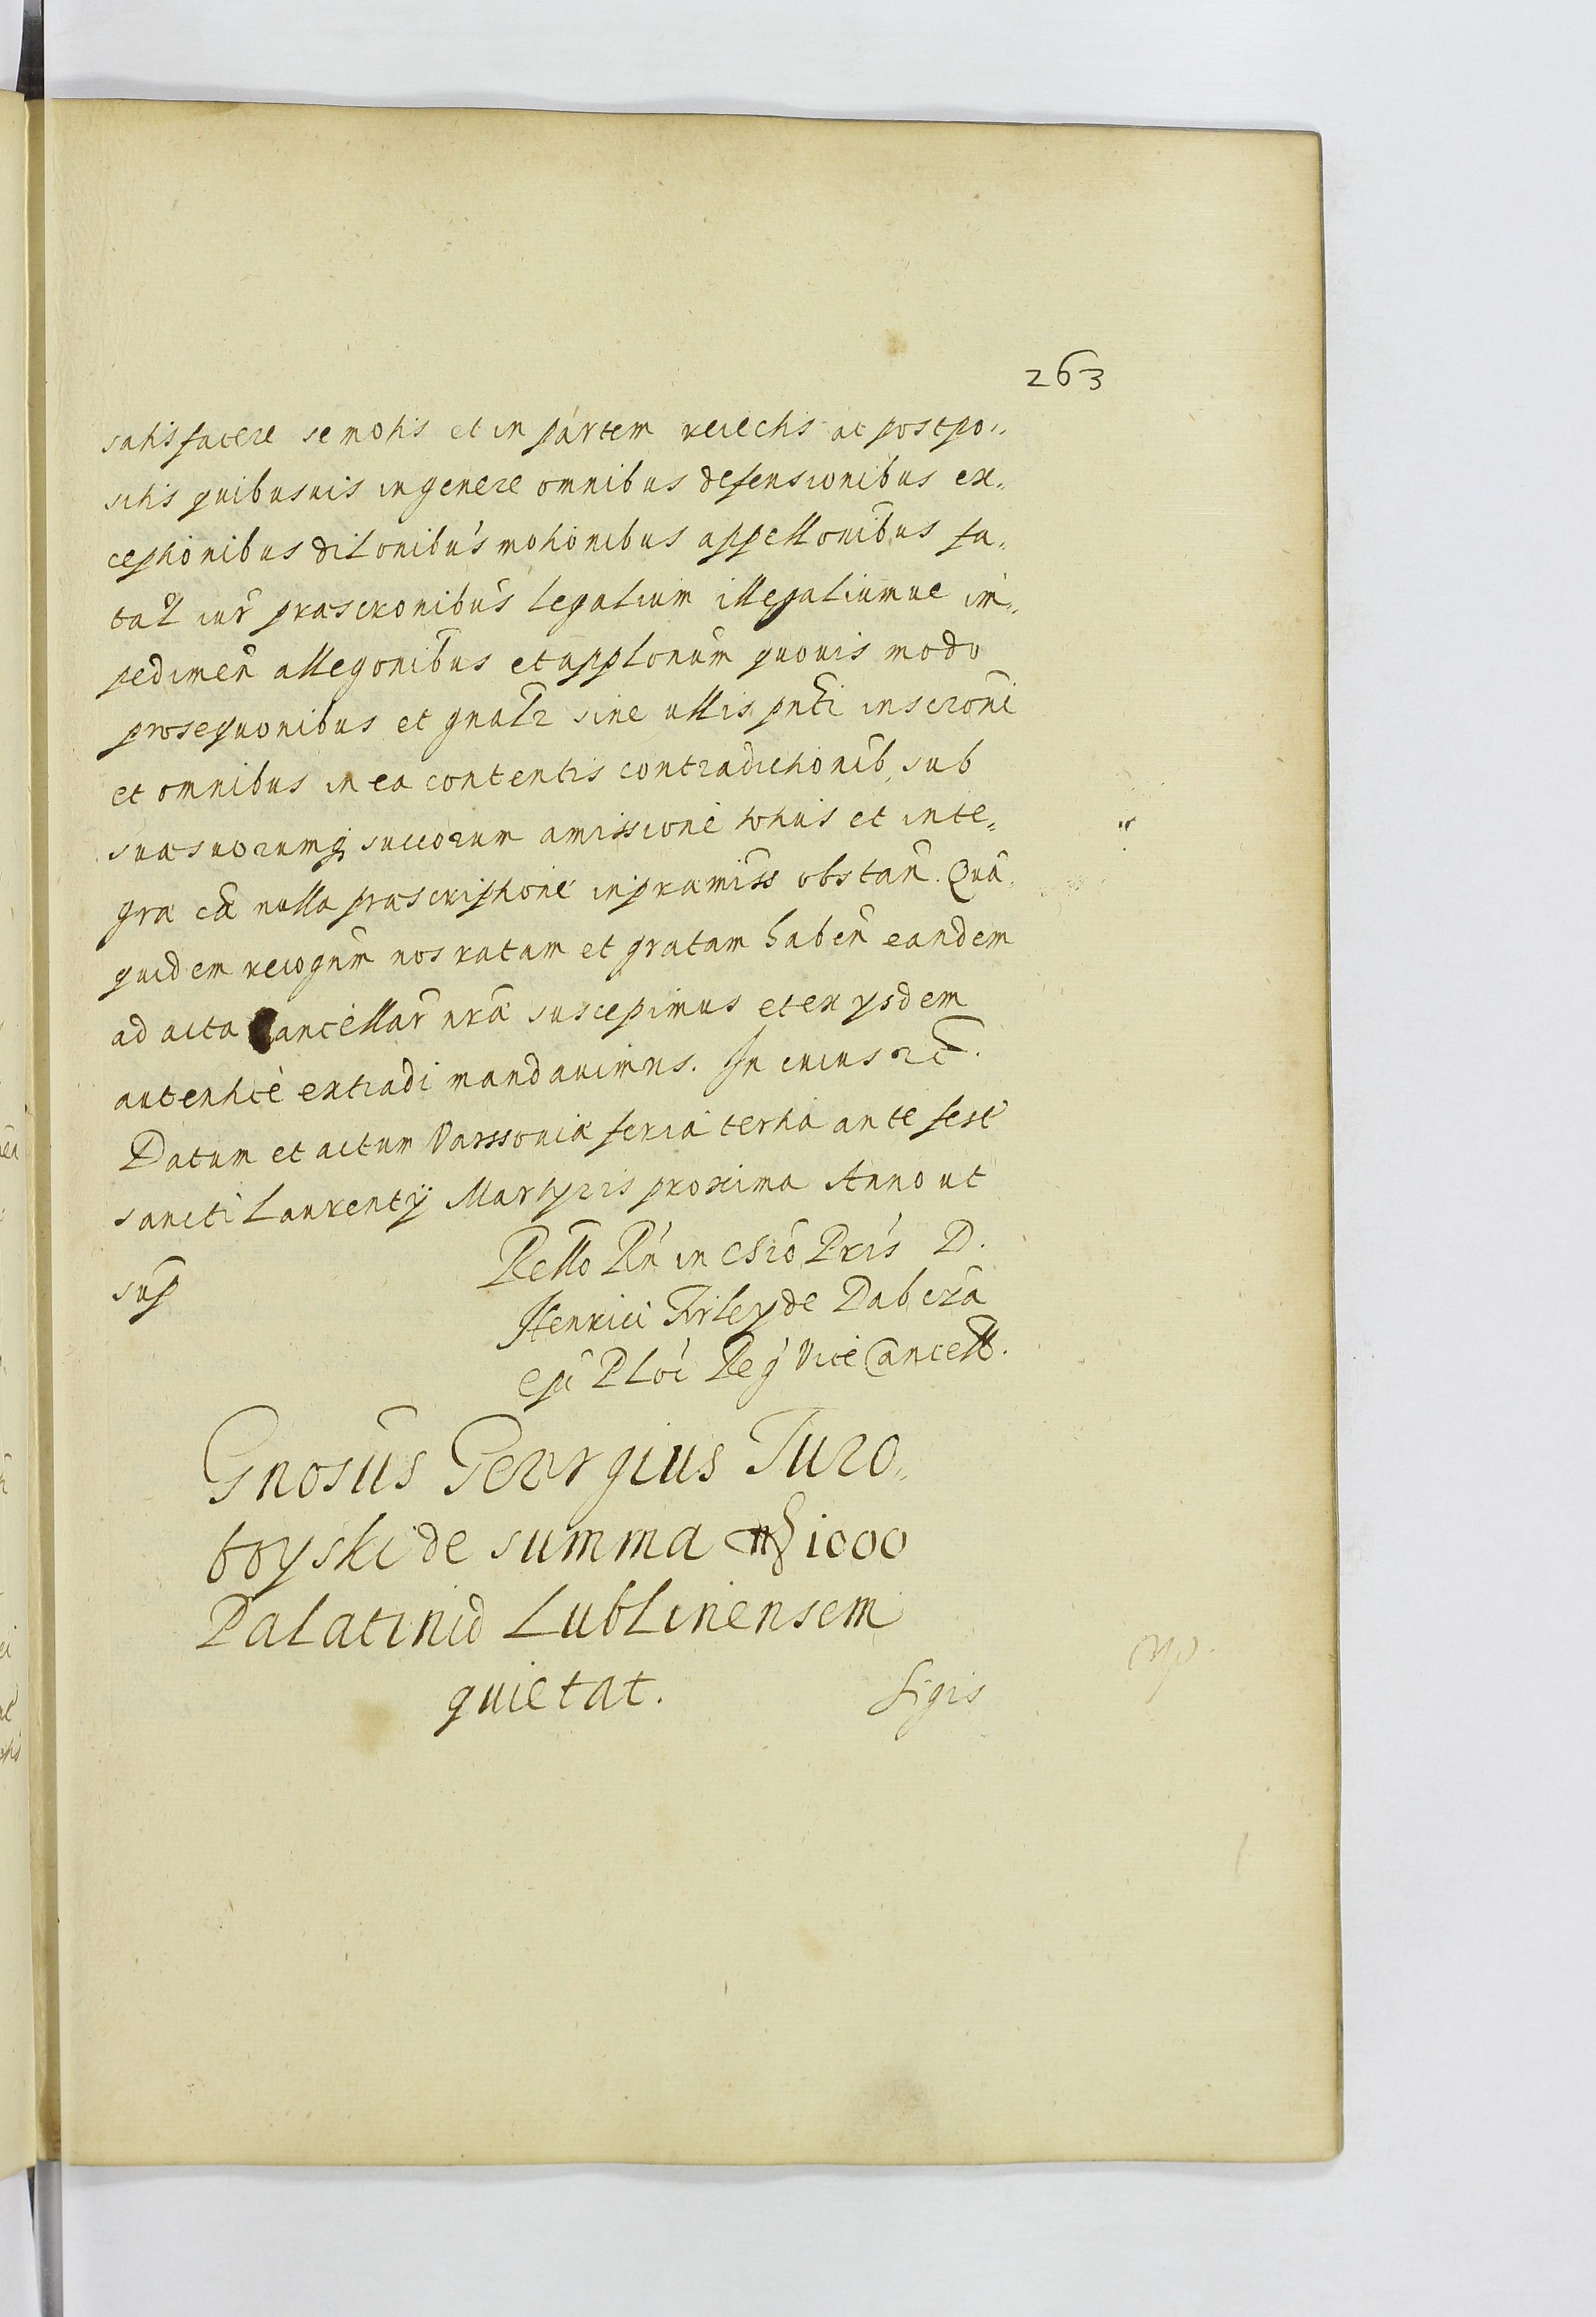 263
satisfacere semotis et in partem reiectis ac postpo„
sitis quibusuis in genere omnibus defensionibus ex„
ceptionibus dilonibus motionibus appellonibus fa„
tal iur præscronibus legalium illegaliumue im„
pedimen allegonibus et applonum quouis modo
prosequonibus et gnalr sine ullis pnti inscroni
et omnibus in ea contentis contradictionib, sub
sua suorumq succorum amissione totius et inte„
gra ca nulla præscriptione in præmiss obstan. Qua
quidem recognm nos ratam et gratam haben eandem
ad acta Cancellar nra suscepimus et ex ysdem
autentice extradi mandauimus. In cuius rei.
Datum et actum Varssouiæ feria tertia ante fest
sancti Laurentÿ Martyris proxima Anno ut
sup
Rello Rn in Chro Pris D.
Henrici Firley de Dabrowa
Epi Ploc Reg Vice Cancell.
Gnosus Georgius Turo„
boyski de summa fl 1000
Palatinid Lublinensem
quietat.
Sigis